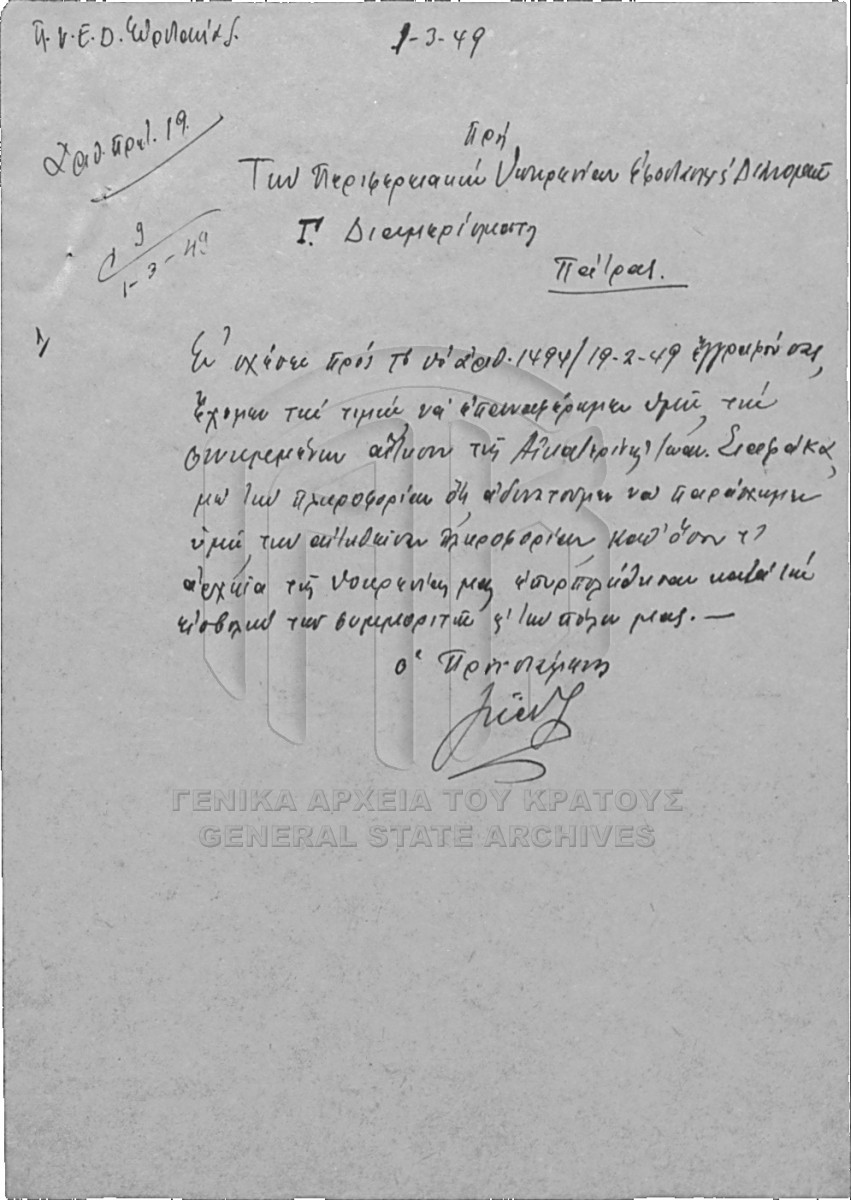 Π.Υ.Ε.Δ. Εὐρυτανίας.
1-3-49
Ἀριθ. Πρωτ. 19.
9
1-3-49
Πρὸς
Τὴν Περιφερειακὴν Ὑπηρεσίαν
Γ. Διαμερίσματος
Πάτρας.
Ἐν σχέσει πρὸς τὸ ὑπ' ἀριθ. 1494/19-2-49 ἔγγραφόν σας,
ἔχομεν τὴν τιμὴν νὰ ἐπαναφέρωμεν ὑμῖν, τὴν
συνημμένην αἴτησιν τῆς Αἰκατερίνης Ἰωάν.
μὲ τὴν πληροφορίαν ὅτι ἀδυνατοῦμεν νὰ παράσχωμεν
ὑμῖν τὴν αἰτηθεῖσαν πληροφορίαν, καθ' ὅσον τὰ
ἀρχεῖα τῆς Ὑπηρεσίας μας ἐπυρπολήθησαν κατὰ τὴν
εἰσβολὴν τῶν συμμοριτῶν εἰς τὴν πόλιν μας. —
ὁ Προϊστάμενος
ΓΕΝΙΚΑ ΑΡΧΕΙΑ ΤΟΥ ΚΡΑΤΟΥΣ
GENERAL STATE ARCHIVES